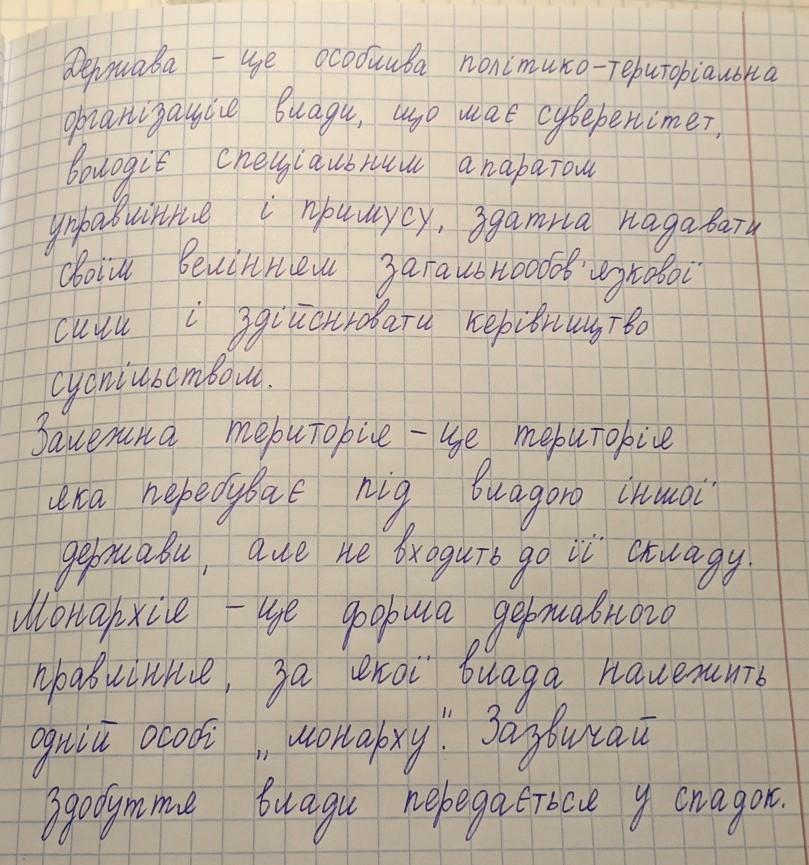 Держава - це особлива політико-територіальна
організація влади, що має суверенітет,
володіє спеціальним апаратом
управління і примусу, здатна надавати
своїм велінням загальнообов'язкової
сили і здійснювати керівництво
суспільством.
Залежна територія - це територія
яка перебуває під владою іншої
держави, але не входить до її складу.
Монархія - це форма державного
правління, за якої влада належить
одній особі „монарху". Зазвичай
здобуття влади передається у спадок.